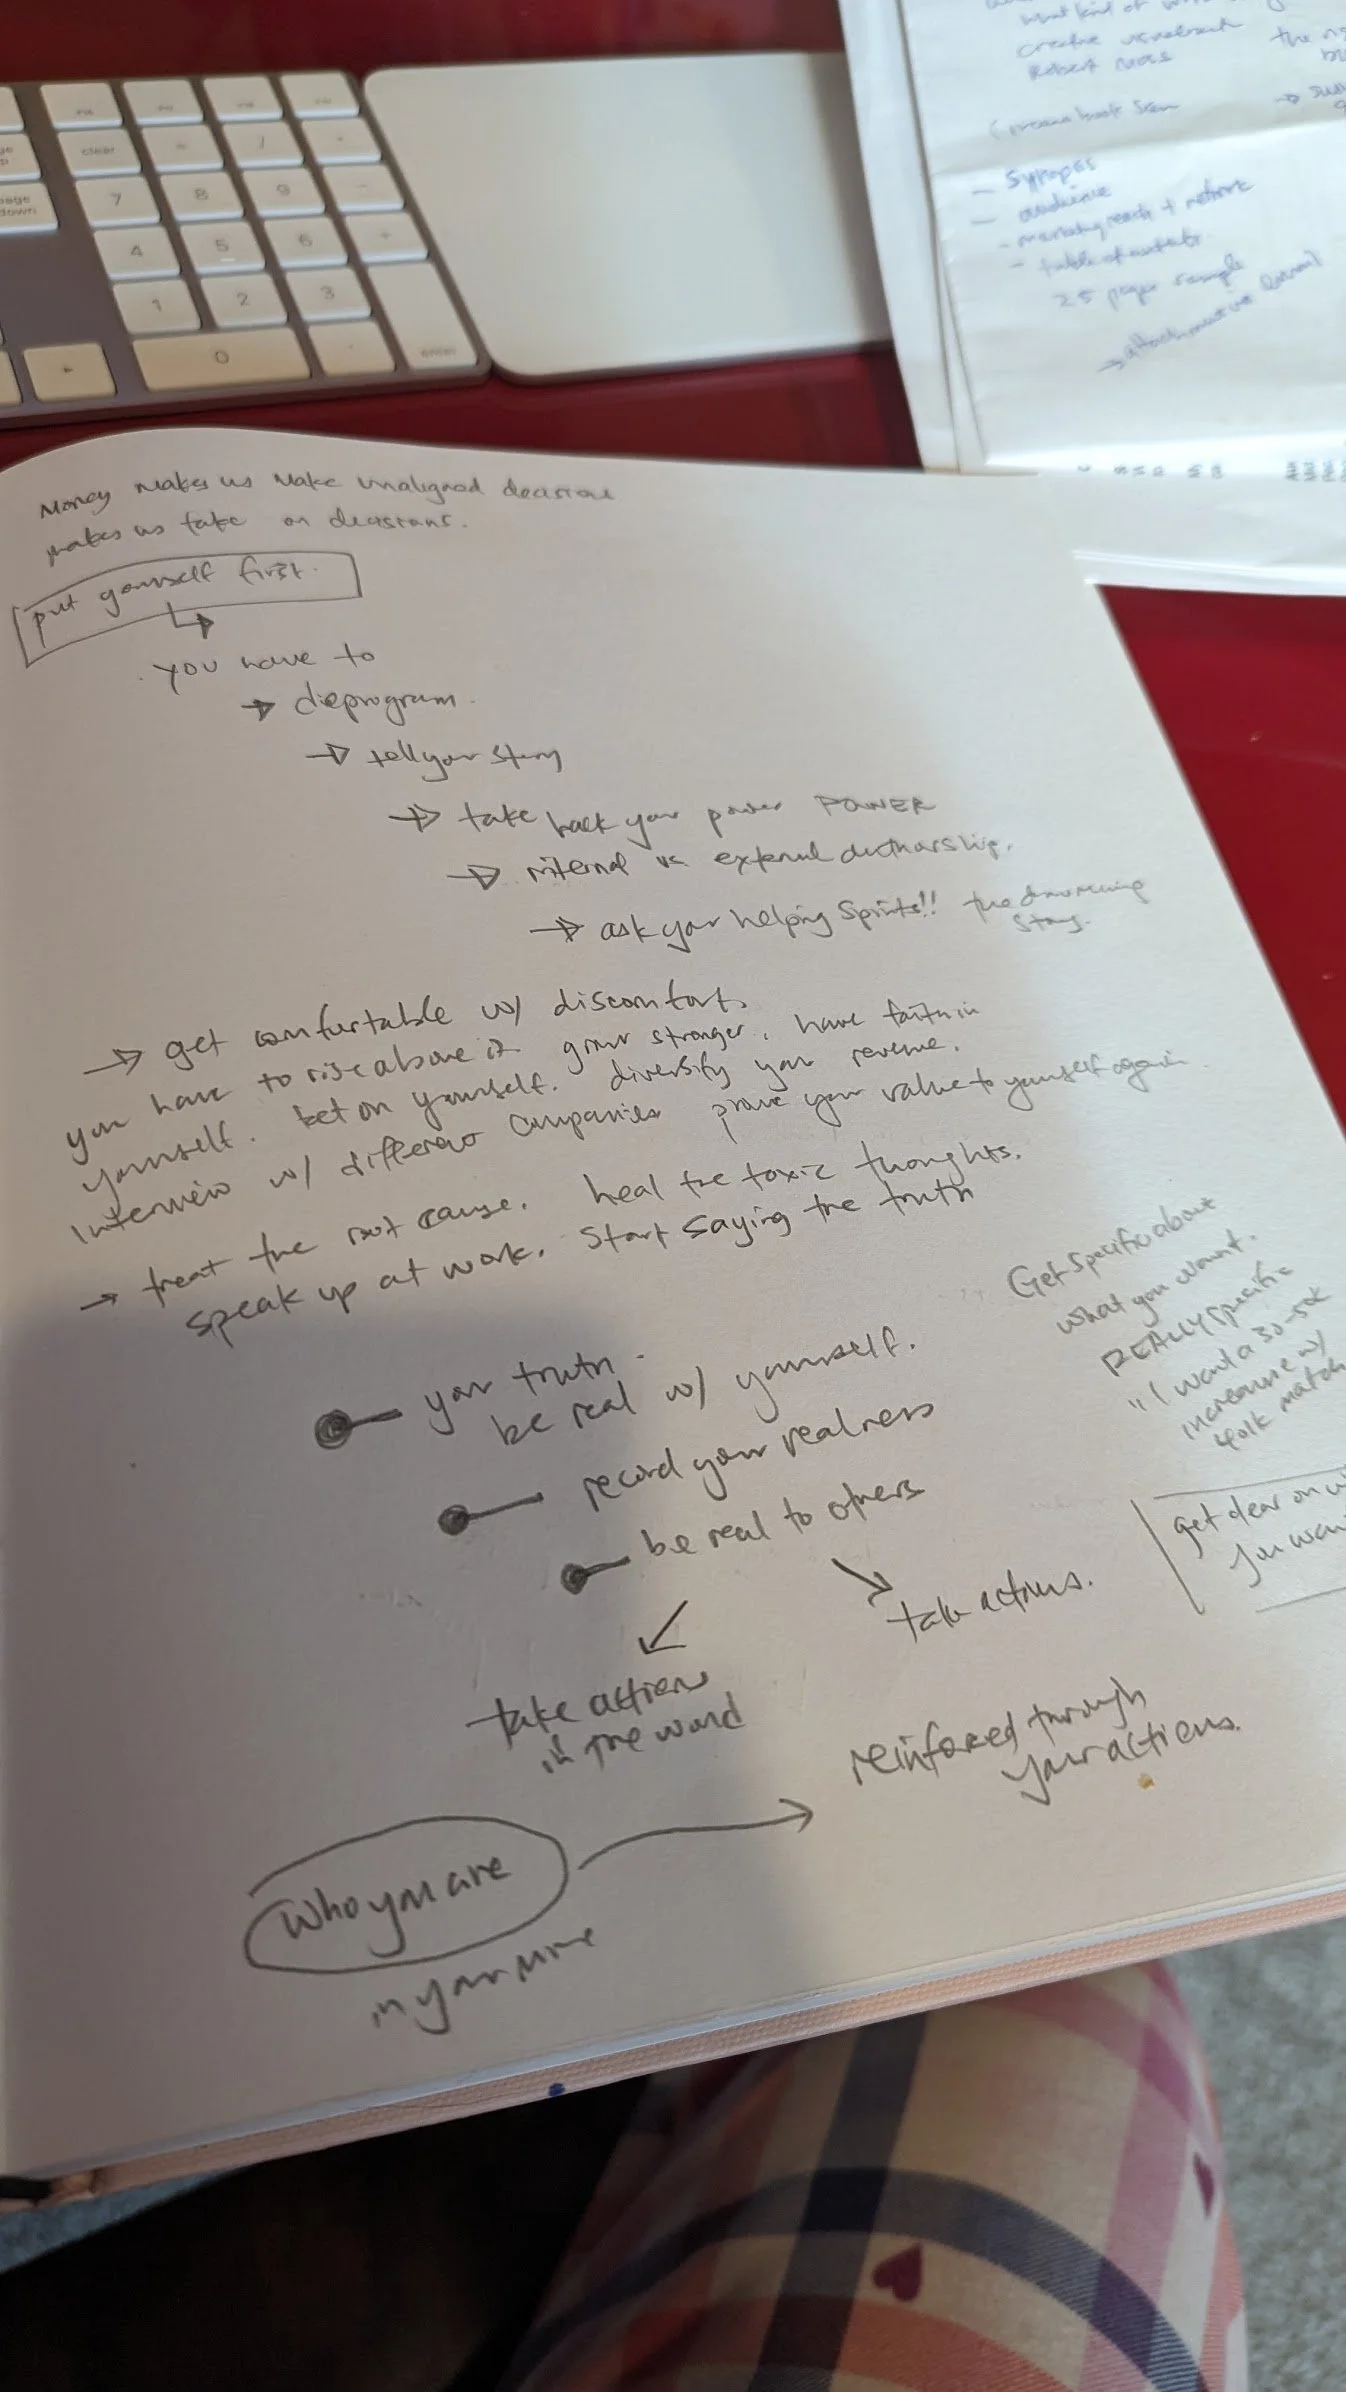 Money makes us make unaligned decisions
makes us take on decisions.
put yourself first.
you have to
deprogram.
tell your story
take back your power POWER
internal vs external authorship.
ask your helping spirits!! the
story.
get comfortable w/ discomfort.
you have to rise above it. grow stronger. have faith in
yourself. bet on yourself. diversify your revenue.
Interview w/ different companies prove your value to yourself again
treat the root cause. heal the toxic thoughts.
speak up at work. Start saying the truth
your truth.
be real w/ yourself.
record your realness
be real to others
take actions.
take actions
in the world
reinforced through
your actions.
Who you are
in your
Get specific about
what you want.
REALLY specific
"I want a 30-50k
increase w/
401k match
get clear on
you want
what kind of
creative
Robert
the
synopsis
audience
marketing reach + network
table of contents
25 pages sample
clear
page
down
7
8
9
4
5
6
1
2
3
0
enter